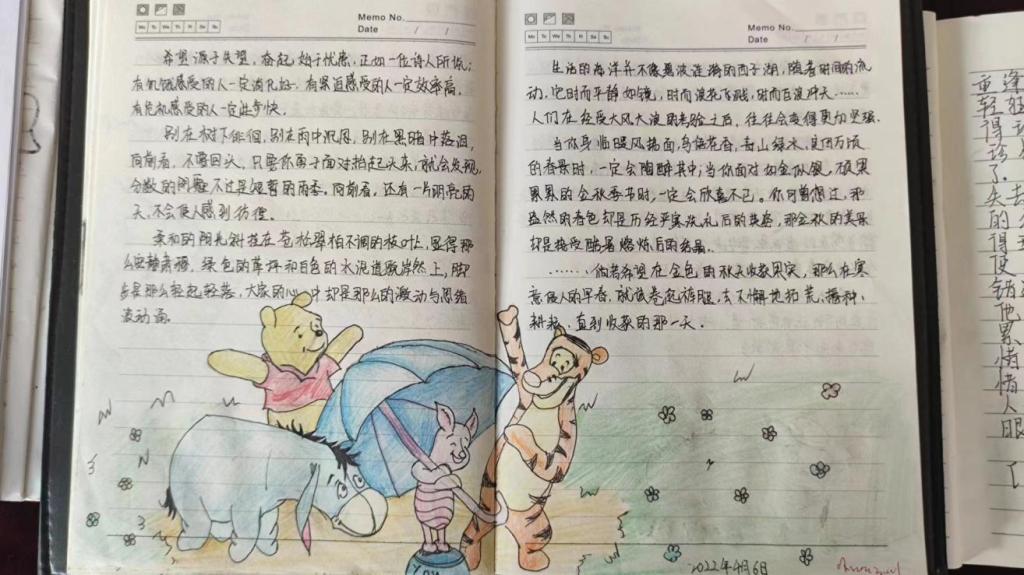 Memo No.
Mo Tu We Th Fr Sa Su
Date / /
希望源于失望，奋起始于忧患，正如一位诗人所说：
有饥饿感受的人一定消化好，有紧迫感受的人一定效率高，
有危机感受的人一定进步快。
别在树下徘徊，别在雨中沉思，别在黑暗中落泪，
向前看，不要回头，只要你勇于面对抬起头来，就会发现，
分数的阴霾不过是短暂的雨季。向前看，还有一片明亮的
天，不会使人感到彷徨。
柔和的阳光斜挂在苍松翠柏不凋的枝叶上，显得那
么安静肃穆，绿色的草坪和白色的水泥道貌岸然上，脚
步是那么轻起轻落，大家的心中却是那么的激动与思绪
波动着。
Memo No.
Mo Tu We Th Fr Sa Su
Date / /
生活的海洋并不像碧波涟漪的西子湖，随着时间的流
动，它时而平静如镜，时而浪花飞溅，时而巨浪冲天……
人们在经受大风大浪的考验之后，往往会变得更加坚强。
当你身临暖风拂面，鸟语花香，青山绿水，良田万顷
的春景时，一定会陶醉其中；当你面对如金似银，硕果
累累的金秋季节时，一定会欣喜不已。你可曾想过，那
盎然的春色却是历经严寒洗礼后的英姿，那金秋的美景
却是接受酷暑熔炼后的结晶。
……倘若希望在金色的秋天收获果实，那么在寒
意侵人的早春，就该卷起裤腿，去不懈地拓荒、播种、
耕耘，直到收获的那一天。
2022年4月6日